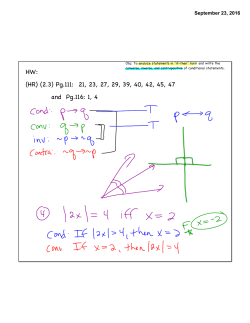 September 23, 2016
Obj: To analyze statements in "if-then" form and write the
converse, inverse, and contrapositive of conditional statements.
HW:
(HR) (2.3) Pg.111: 21, 23, 27, 29, 39, 40, 42, 45, 47
and Pg.116: 1, 4
Cond: p→q T p↔q
Conv: q→p T
inv: ~p→~q
Contra: ~q→~p
④ |2x|=4 iff x=2
Cond: If |2x|=4, then x=2 F x=-2
Conv: If x=2, then |2x|=4